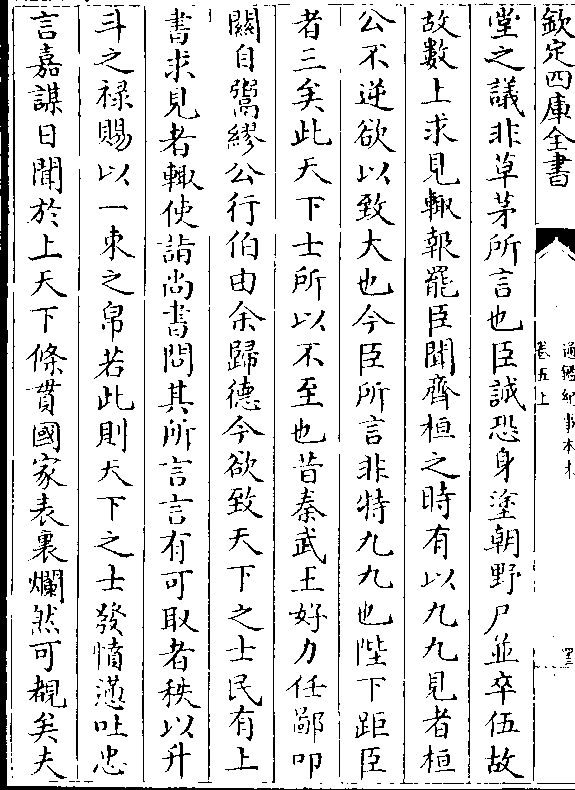 欽定四庫全書
通鑑紀事本末
卷五上
堂之議非草茅所言也臣誠恐身塗朝野尸並卒伍故
故數上求見輒報罷臣聞齊桓之時有以九九見者桓
公不逆欲以致大也今臣所言非特九九也陛下距臣
者三矣此天下士所以不至也昔秦武王好力任鄙叩
關自鬻繆公行伯由余歸德今欲致天下之士民有上
書求見者輒使詣尚書問其所言言有可取者秩以升
斗之禄賜以一束之帛若此則天下之士發憤懣吐忠
言嘉謀日聞於上天下條貫國家表裏爛然可覩矣夫